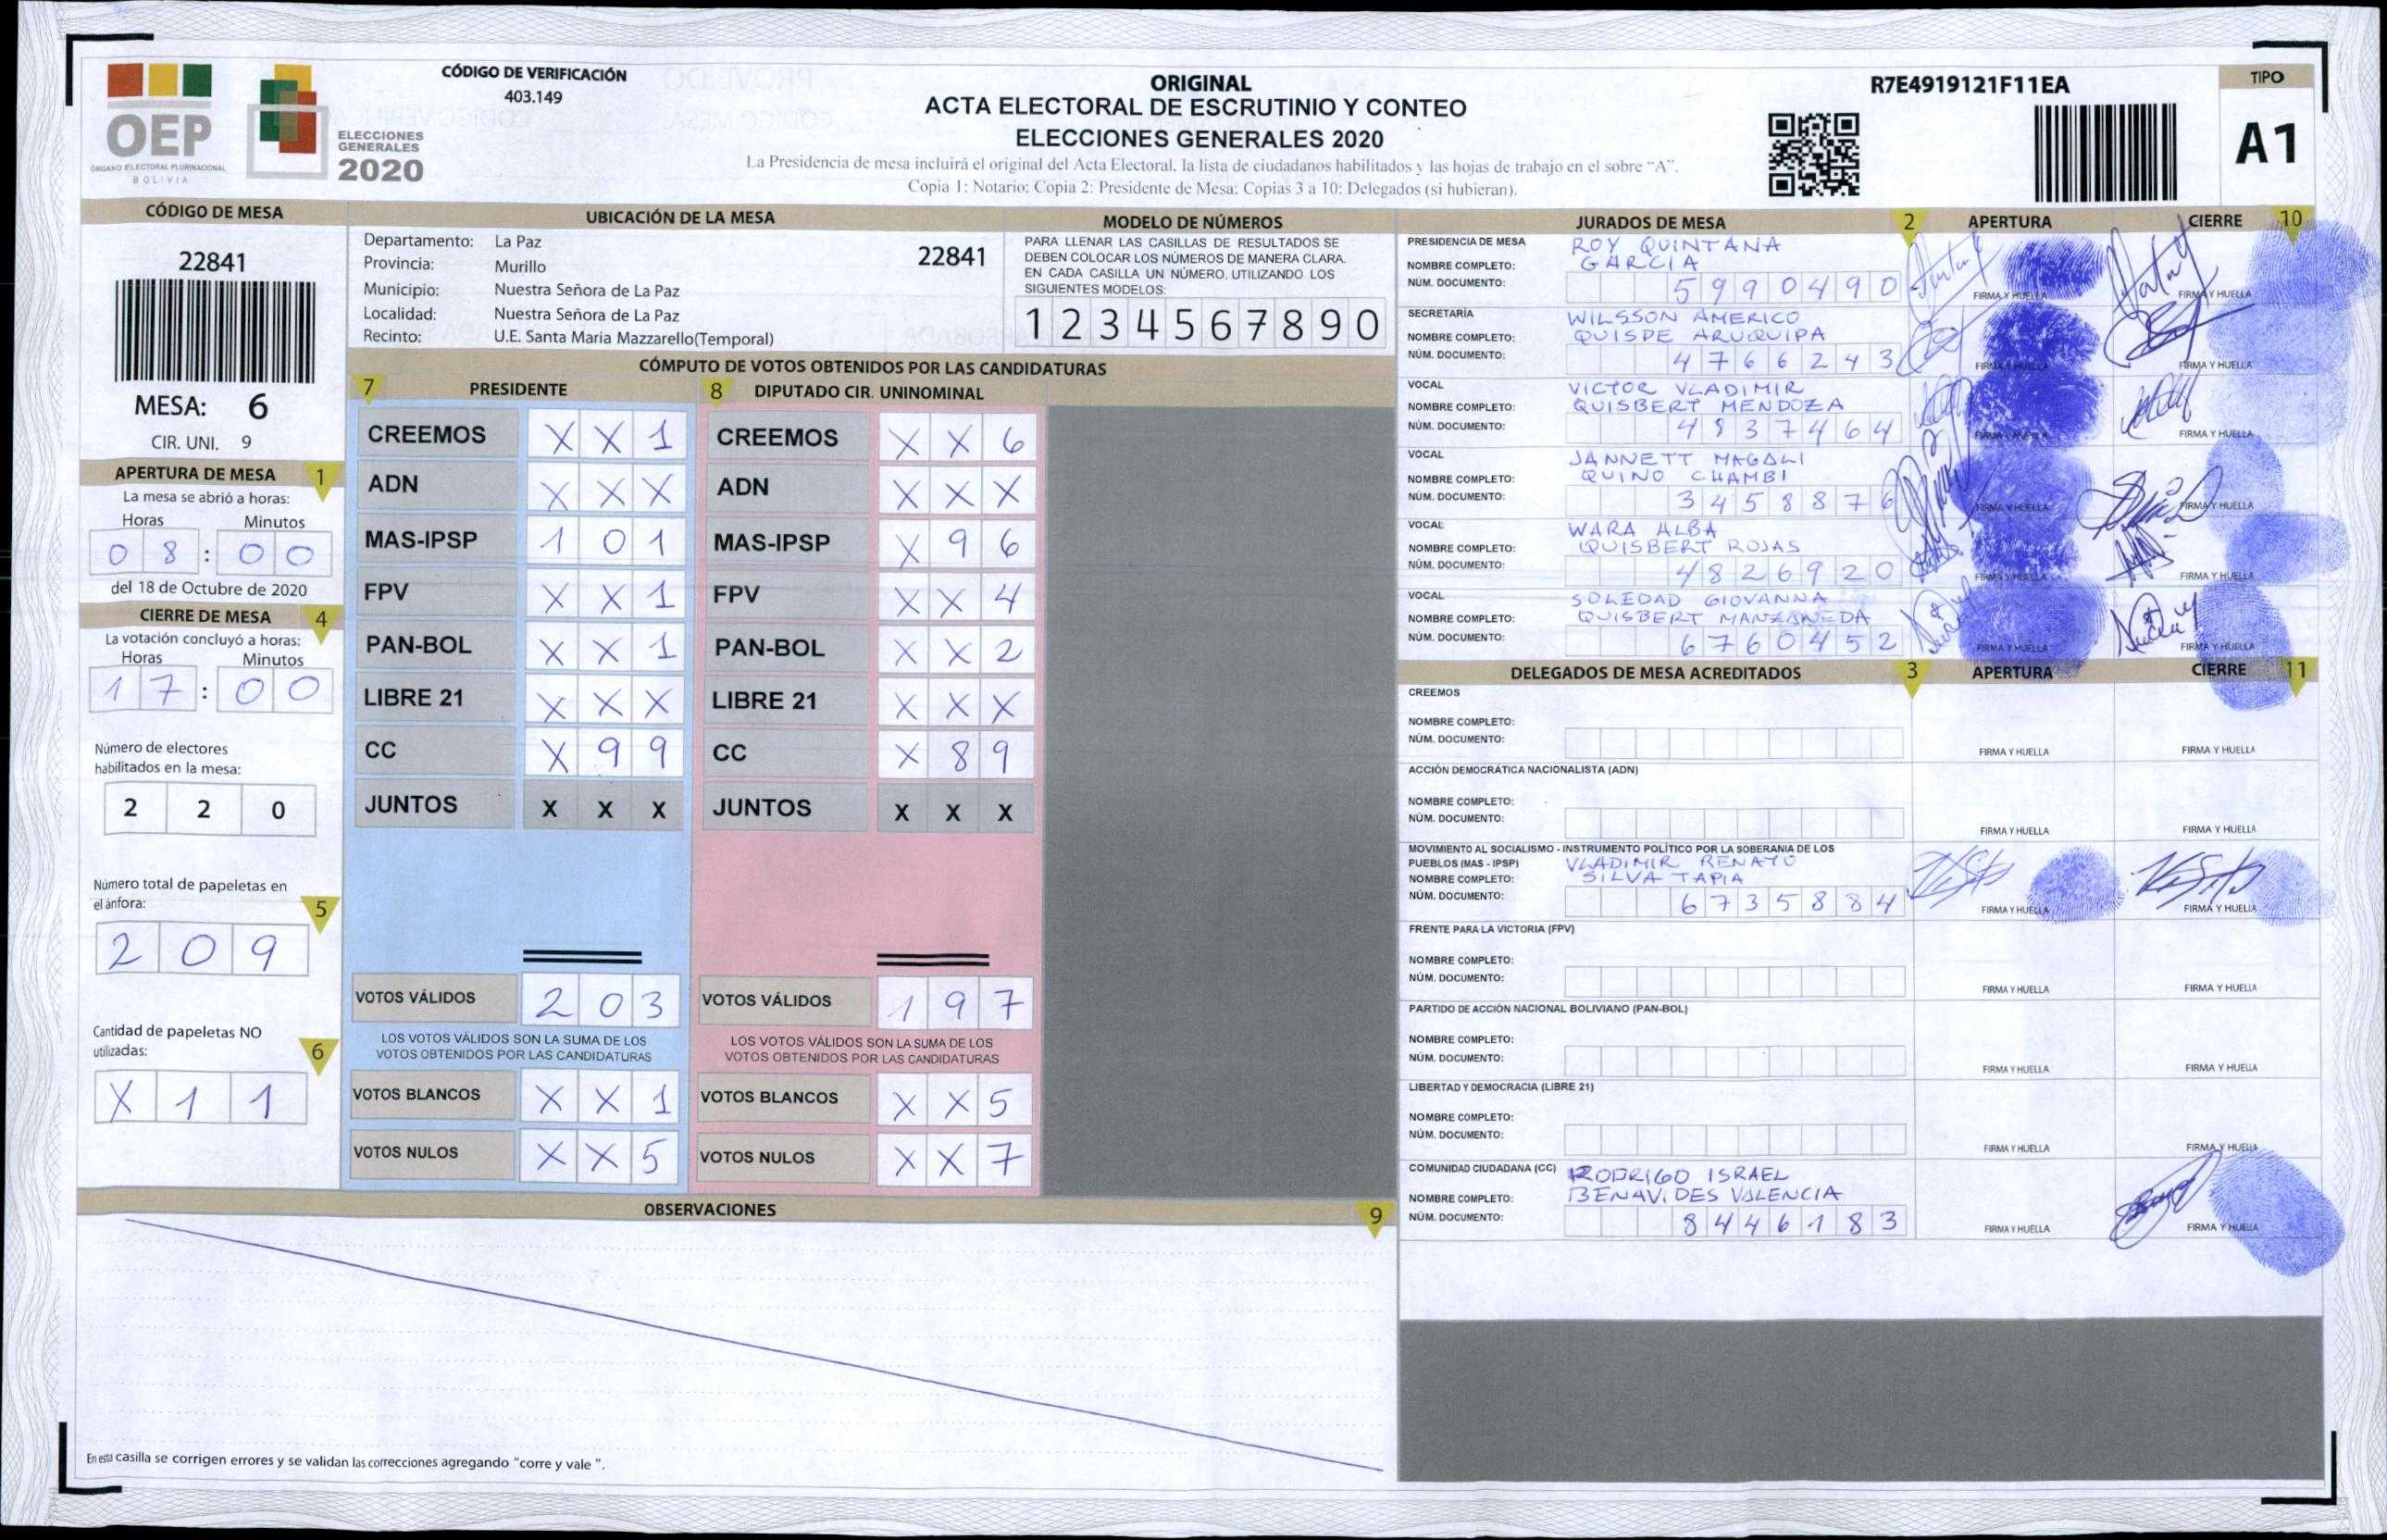 OEP
ÓRGANO ELECTORAL PLURINACIONAL
BOLIVIA
ELECCIONES
GENERALES
2020
CÓDIGO DE VERIFICACIÓN
403.149
ORIGINAL
ACTA ELECTORAL DE ESCRUTINIO Y CONTEO
ELECCIONES GENERALES 2020
La Presidencia de mesa incluirá el original del Acta Electoral, la lista de ciudadanos habilitados y las hojas de trabajo en el sobre “A”.
Copia 1: Notario; Copia 2: Presidente de Mesa; Copias 3 a 10: Delegados (si hubieran).
R7E4919121F11EA
TIPO
A1
CÓDIGO DE MESA
22841
MESA: 6
CIR. UNI. 9
APERTURA DE MESA 1
La mesa se abrió a horas:
Horas Minutos
0 8 : 0 0
del 18 de Octubre de 2020
CIERRE DE MESA 4
La votación concluyó a horas:
Horas Minutos
1 7 : 0 0
Número de electores
habilitados en la mesa:
2 2 0
Número total de papeletas en
el ánfora: 5
2 0 9
Cantidad de papeletas NO
utilizadas: 6
X 1 1
UBICACIÓN DE LA MESA
Departamento: La Paz
22841
Provincia: Murillo
Municipio: Nuestra Señora de La Paz
Localidad: Nuestra Señora de La Paz
Recinto: U.E. Santa Maria Mazzarello(Temporal)
MODELO DE NÚMEROS
PARA LLENAR LAS CASILLAS DE RESULTADOS SE
DEBEN COLOCAR LOS NÚMEROS DE MANERA CLARA.
EN CADA CASILLA UN NÚMERO, UTILIZANDO LOS
SIGUIENTES MODELOS:
1 2 3 4 5 6 7 8 9 0
CÓMPUTO DE VOTOS OBTENIDOS POR LAS CANDIDATURAS
7 PRESIDENTE
CREEMOS X X 1
ADN X X X
MAS-IPSP 1 0 1
FPV X X 1
PAN-BOL X X 1
LIBRE 21 X X X
CC X 9 9
JUNTOS X X X
VOTOS VÁLIDOS 2 0 3
LOS VOTOS VÁLIDOS SON LA SUMA DE LOS
VOTOS OBTENIDOS POR LAS CANDIDATURAS
VOTOS BLANCOS X X 1
VOTOS NULOS X X 5
8 DIPUTADO CIR. UNINOMINAL
CREEMOS X X 6
ADN X X X
MAS-IPSP X 9 6
FPV X X 4
PAN-BOL X X 2
LIBRE 21 X X X
CC X 8 9
JUNTOS X X X
VOTOS VÁLIDOS 1 9 7
LOS VOTOS VÁLIDOS SON LA SUMA DE LOS
VOTOS OBTENIDOS POR LAS CANDIDATURAS
VOTOS BLANCOS X X 5
VOTOS NULOS X X 7
OBSERVACIONES 9
En esta casilla se corrigen errores y se validan las correcciones agregando “corre y vale ”.
JURADOS DE MESA 2 APERTURA CIERRE 10
PRESIDENCIA DE MESA ROY QUINTANA
NOMBRE COMPLETO: GARCIA
NÚM. DOCUMENTO: 5 9 9 0 4 9 0 FIRMA Y HUELLA FIRMA Y HUELLA
SECRETARÍA WILSSON AMERICO
NOMBRE COMPLETO: QUISPE ARUQUIPA
NÚM. DOCUMENTO: 4 7 6 6 2 4 3 FIRMA Y HUELLA FIRMA Y HUELLA
VOCAL VICTOR VLADIMIR
NOMBRE COMPLETO: QUISBERT MENDOZA
NÚM. DOCUMENTO: 4 8 3 7 4 6 4 FIRMA Y HUELLA FIRMA Y HUELLA
VOCAL JANNETT MAGALI
NOMBRE COMPLETO: QUINO CHAMBI
NÚM. DOCUMENTO: 3 4 5 8 8 7 6 FIRMA Y HUELLA FIRMA Y HUELLA
VOCAL WARA ALBA
NOMBRE COMPLETO: QUISBERT ROJAS
NÚM. DOCUMENTO: 4 8 2 6 9 2 0 FIRMA Y HUELLA FIRMA Y HUELLA
VOCAL SOLEDAD GIOVANNA
NOMBRE COMPLETO: QUISBERT MANZANEDA
NÚM. DOCUMENTO: 6 7 6 0 4 5 2 FIRMA Y HUELLA FIRMA Y HUELLA
DELEGADOS DE MESA ACREDITADOS 3 APERTURA CIERRE 11
CREEMOS
NOMBRE COMPLETO:
NÚM. DOCUMENTO: FIRMA Y HUELLA FIRMA Y HUELLA
ACCIÓN DEMOCRÁTICA NACIONALISTA (ADN)
NOMBRE COMPLETO:
NÚM. DOCUMENTO: FIRMA Y HUELLA FIRMA Y HUELLA
MOVIMIENTO AL SOCIALISMO - INSTRUMENTO POLÍTICO POR LA SOBERANIA DE LOS
PUEBLOS (MAS - IPSP) VLADIMIR RENATO
NOMBRE COMPLETO: SILVA TAPIA
NÚM. DOCUMENTO: 6 7 3 5 8 8 4 FIRMA Y HUELLA FIRMA Y HUELLA
FRENTE PARA LA VICTORIA (FPV)
NOMBRE COMPLETO:
NÚM. DOCUMENTO: FIRMA Y HUELLA FIRMA Y HUELLA
PARTIDO DE ACCIÓN NACIONAL BOLIVIANO (PAN-BOL)
NOMBRE COMPLETO:
NÚM. DOCUMENTO: FIRMA Y HUELLA FIRMA Y HUELLA
LIBERTAD Y DEMOCRACIA (LIBRE 21)
NOMBRE COMPLETO:
NÚM. DOCUMENTO: FIRMA Y HUELLA FIRMA Y HUELLA
COMUNIDAD CIUDADANA (CC) RODRIGO ISRAEL
NOMBRE COMPLETO: BENAVIDES VALENCIA
NÚM. DOCUMENTO: 8 4 4 6 1 8 3 FIRMA Y HUELLA FIRMA Y HUELLA